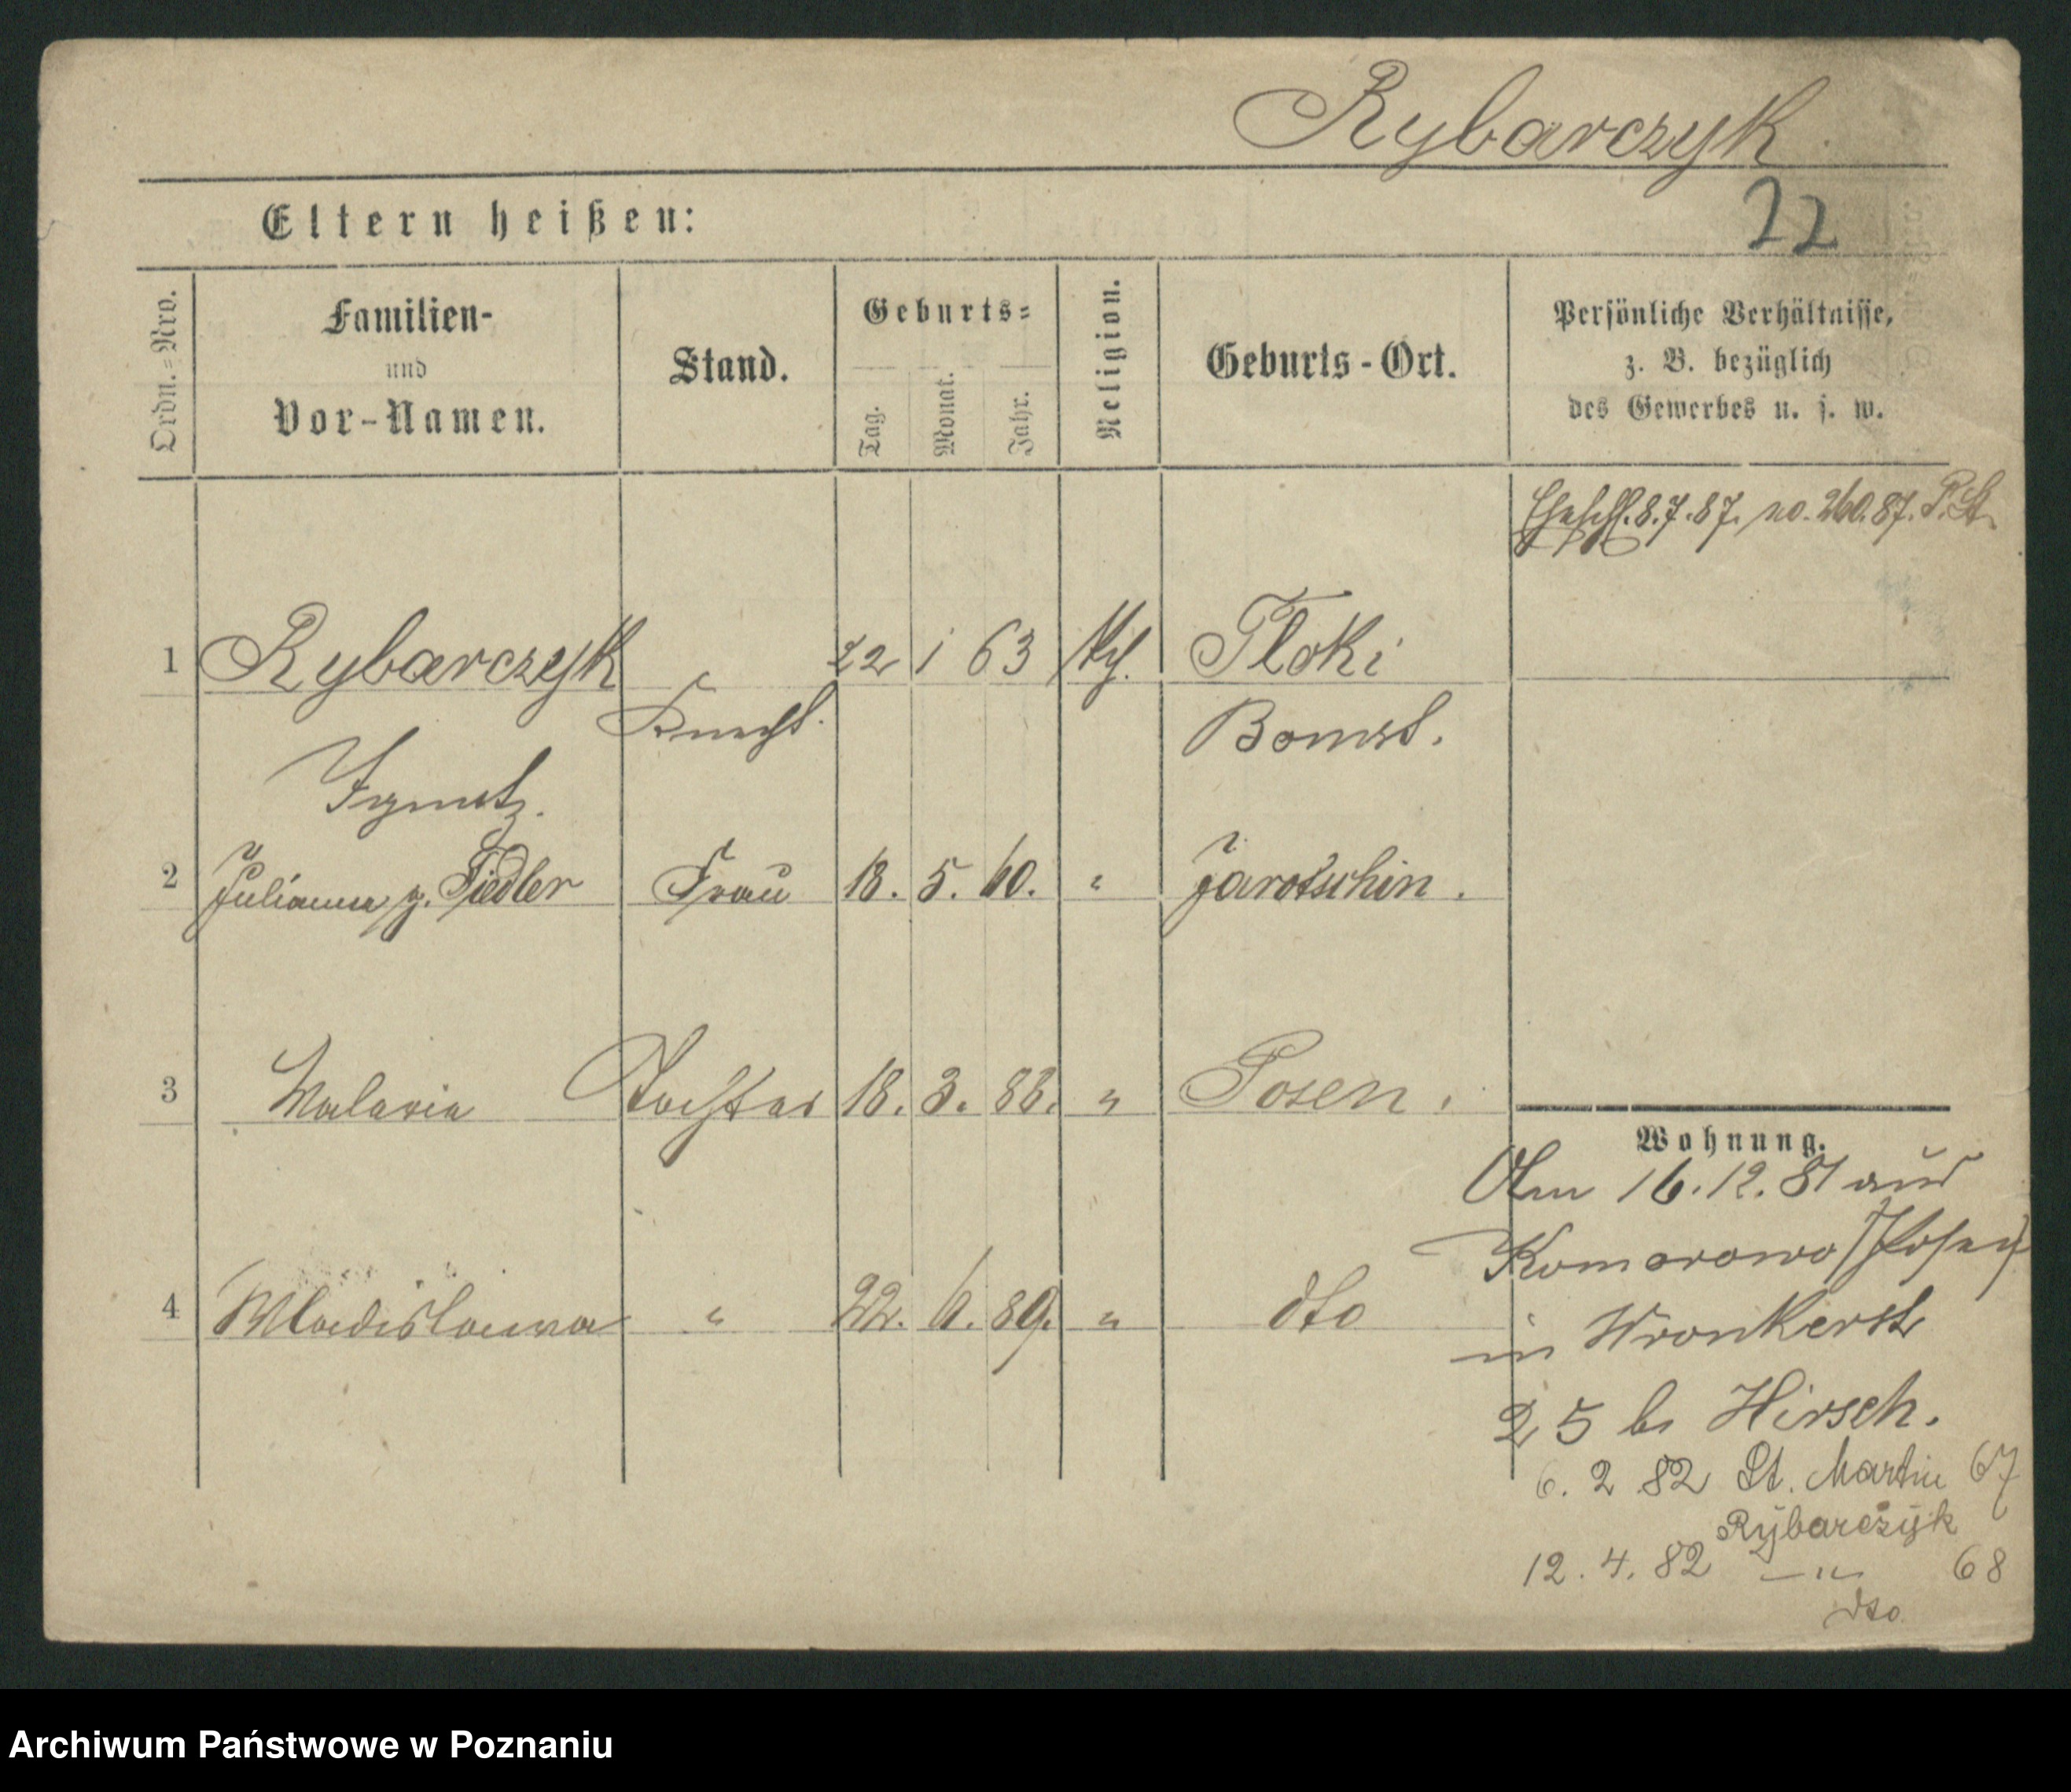 Rybarczyk.
22
Eltern heißen:
Ordn.=Nro.
Familien-
und
Vor-Namen.
Stand.
Geburts=
Tag.
Monat.
Jahr.
Religion.
Geburts-Ort.
Persönliche Verhältnisse,
z. B. bezüglich
des Gewerbes u. s. w.
Eheschl. 8.7.87. no. 260.87. P. St.
1 Rybarczyk 22 1 63 Kth. Tloki
Knecht. Bomst.
Ignatz.
2 Julianna g. Fiedler Frau 18. 5. 60. " Jarotschin.
3 Walaria Tochter 18. 3. 88. " Posen.
Wohnung.
Am 16.12.81 aus
Komorowo (Posen)
4 Wladislawa " 22. 6. 89. " dto
in Wronkerst
25 b. Hirsch.
6. 2 82 St. Martin 67
Rybarczyk
12. 4. 82 —"— 68
dto
Archiwum Państwowe w Poznaniu